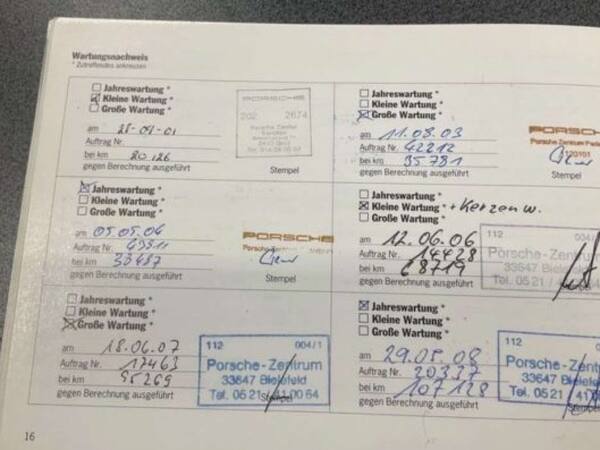 Wartungsnachweis
* Zutreffendes ankreuzen
Jahreswartung *
Kleine Wartung *
Große Wartung *
am 28-09-01
Auftrag Nr.
bei km 20126
gegen Berechnung ausgeführt
PORSCHE
202 2674
Porsche Zenter
Stempel
Jahreswartung *
Kleine Wartung *
Große Wartung *
am 11.08.03
Auftrag Nr. 42212
bei km 35781
gegen Berechnung ausgeführt
PORSCHE
Porsche Zentrum
Stempel
Jahreswartung *
Kleine Wartung *
Große Wartung *
am 05.05.04
Auftrag Nr.
bei km
gegen Berechnung ausgeführt
PORSCHE
Stempel
Jahreswartung *
Kleine Wartung * + Kerzen w.
Große Wartung *
am 12.06.06
Auftrag Nr. 14428
bei km 68719
gegen Berechnung ausgeführt
112 004/
Porsche-Zentrum
33647 Bielefeld
Tel. 05 21 /
Stempel
Jahreswartung *
Kleine Wartung *
Große Wartung *
am 18.06.07
Auftrag Nr. 17463
bei km 95269
gegen Berechnung ausgeführt
112 004/1
Porsche-Zentrum
33647 Bielefeld
Tel. 05 21 / 41 00 64
Stempel
Jahreswartung *
Kleine Wartung *
Große Wartung *
am 29.05.08
Auftrag Nr. 20337
bei km 107128
gegen Berechnung ausgeführt
112 004/1
Porsche-Zentrum
33647 Bielefeld
Tel. 05 21 / 41
Stempel
16